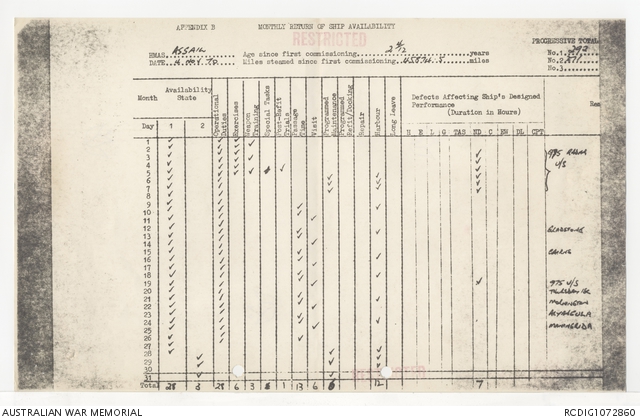 APPENDIX B MONTHLY RETURN OF SHIP AVAILABILITY
RESTRICTED
PROGRESSIVE TOTAL
HMAS ASSAIL Age since first commissioning 2 4/12 years No.1 292
DATE Miles steamed since first commissioning miles No.2
No.3
Month Availability State Operational Duties Exercises Weapon Training Special Tasks Post-Refit Trials Passage Time Visit Programmed Maintenance Programmed Refit/Docking Repair Harbour Long Leave Defects Affecting Ship's Designed Performance (Duration in Hours)
Day 1 2 E L G TAS ND C DL CPT
1 ✓ ✓ ✓ ✓ ✓
2 ✓ ✓ ✓ ✓ 975
3 ✓ ✓ ✓ ✓ ✓ U/S
4
5
6
7
8
9
10
11
12 GLADSTONE
13
14
15 CAIRNS
16
17
18
19 975 U/S
20 THURSDAY ISL
21
22 MORNINGTON
23 ALYANGULA
24
25 MANINGRIDA
26
27
28
29
30
31
Total 28 3 28 6 3 1 13 6 12 7
RESTRICTED
AUSTRALIAN WAR MEMORIAL RCDIG1072860